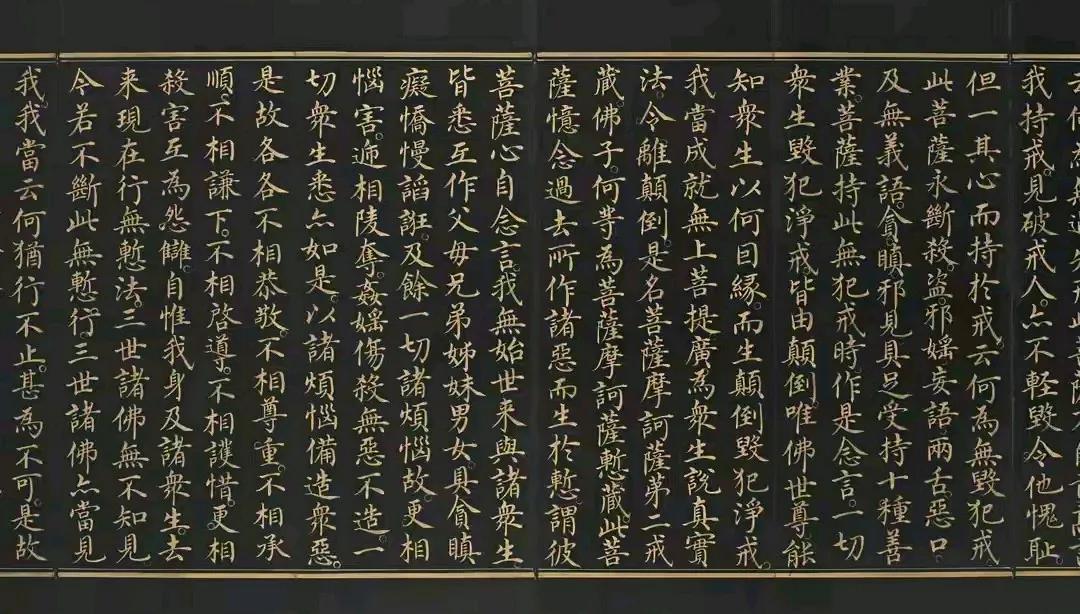 我持戒。見破戒人。亦不輕毀令他愧恥。
但一其心而持於戒。云何為無毀犯戒。
此菩薩永斷殺。盜。邪婬妄語兩舌。惡口
及無義語。貪。瞋。邪見。具足受持十種善
業。菩薩持此無犯戒時。作是念言。一切
衆生毀犯淨戒。皆由顛倒。唯佛世尊能
知衆生以何因緣。而生顛倒毀犯淨戒。
我當成就無上菩提。廣為衆生說真實
法。令離顛倒。是名菩薩摩訶薩第二戒
藏。佛子。何等為菩薩摩訶薩慙藏。此菩
薩憶念過去所作諸惡而生於慙。謂彼
菩薩心自念言。我無始世来與諸衆生。
皆悉互作父母兄弟姊妹男女。具貪瞋
癡憍慢諂誑。及餘一切諸煩惱故。更相
惱害。遞相陵奪。姦婬傷殺無惡不造。一
切衆生悉亦如是。以諸煩惱備造衆惡。
是故各各不相恭敬。不相尊重。不相承
順。不相謙下。不相啓導。不相護惜。更相
殺害互為怨讎。自惟我身及諸衆生。去
来現在行無慙法。三世諸佛無不知見。
今若不斷此無慙行。三世諸佛亦當見
我。我當云何猶行不止。甚為不可。是故